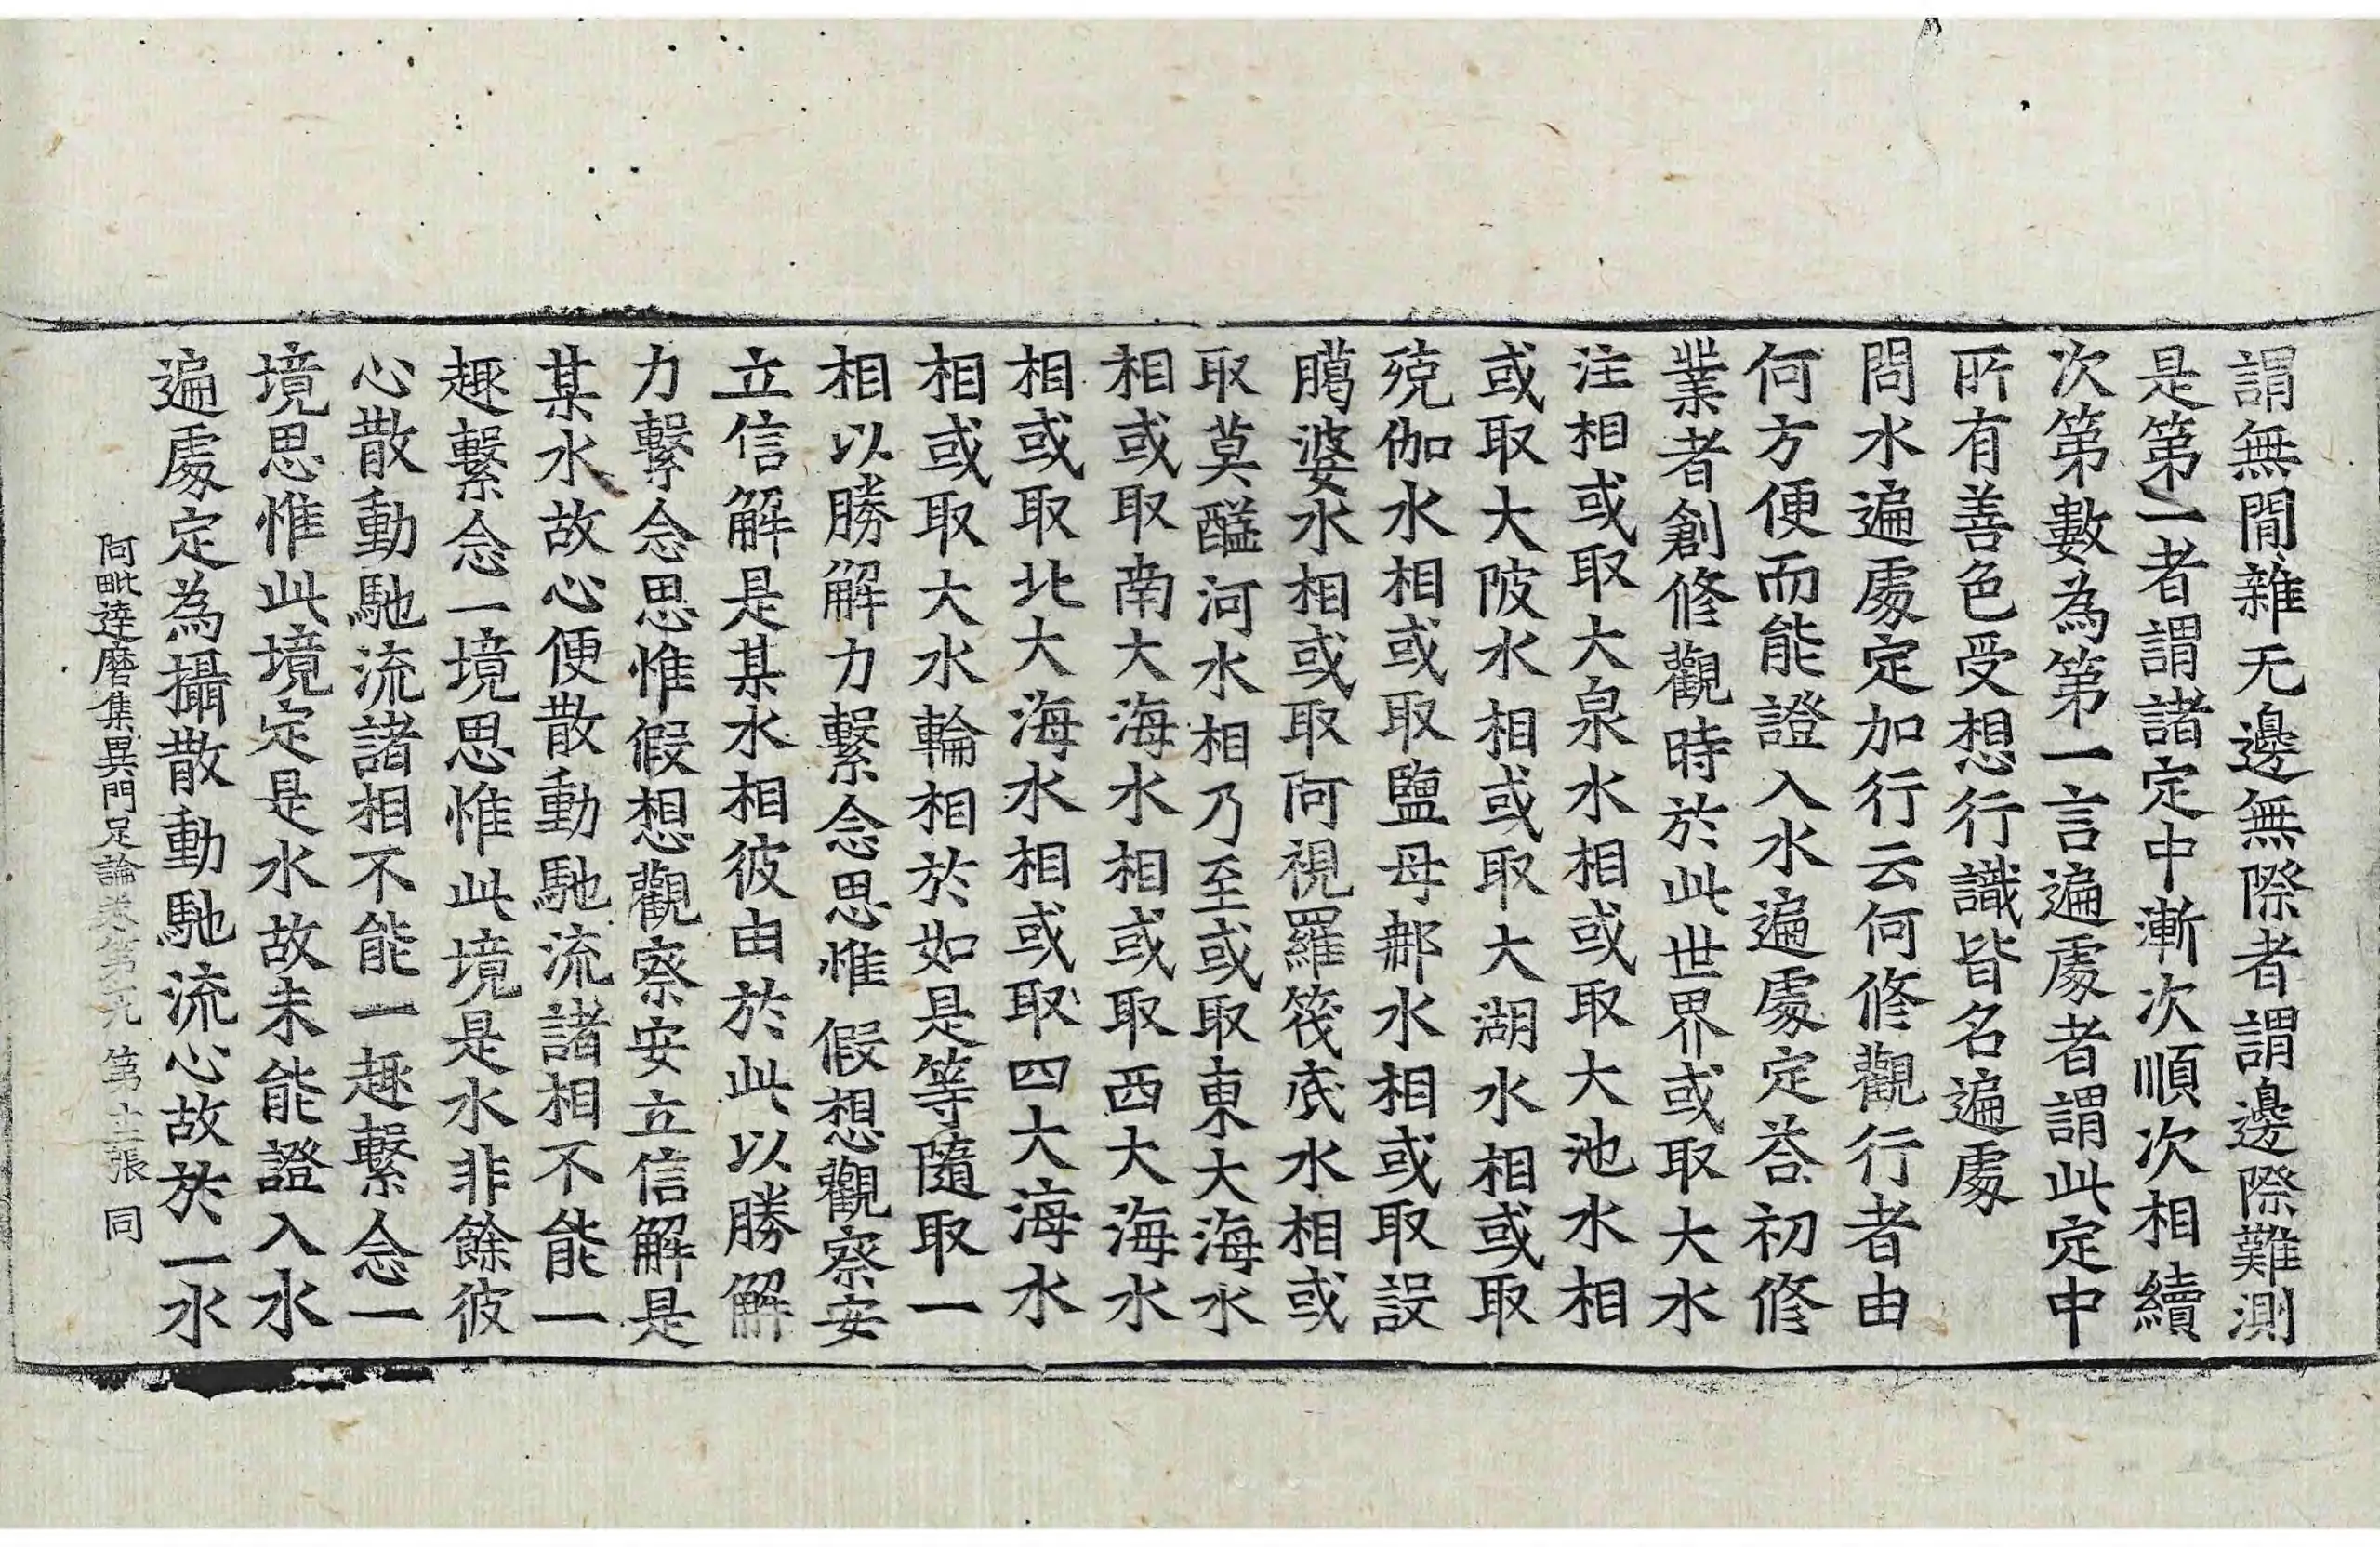 謂無閒雜无邊無際者謂邊際難測
是第一者謂諸定中漸次順次相續
次第數為第一言遍處者謂此定中
所有善色受想行識皆名遍處
問水遍處定加行云何修觀行者由
何方便而能證入水遍處定荅初修
業者創修觀時於此世界或取大水
注相或取大泉水相或取大池水相
或取大陂水相或取大湖水相或取
殑伽水相或取鹽母郍水相或取設
臈婆水相或取阿視羅筏底水相或
取莫醯河水相乃至或取東大海水
相或取南大海水相或取西大海水
相或取北大海水相或取四大海水
相或取大水輪相於如是等隨取一
相以勝解力繫念思惟假想觀察安
立信解是某水相彼由於此以勝解
力繫念思惟假想觀察安立信解是
某水故心便散動馳流諸相不能一
趣繫念一境思惟此境是水非餘彼
心散動馳流諸相不能一趣繫念一
境思惟此境定是水故未能證入水
遍處定為攝散動馳流心故於一水
阿毗達磨集異門足論卷第 第十二張 同